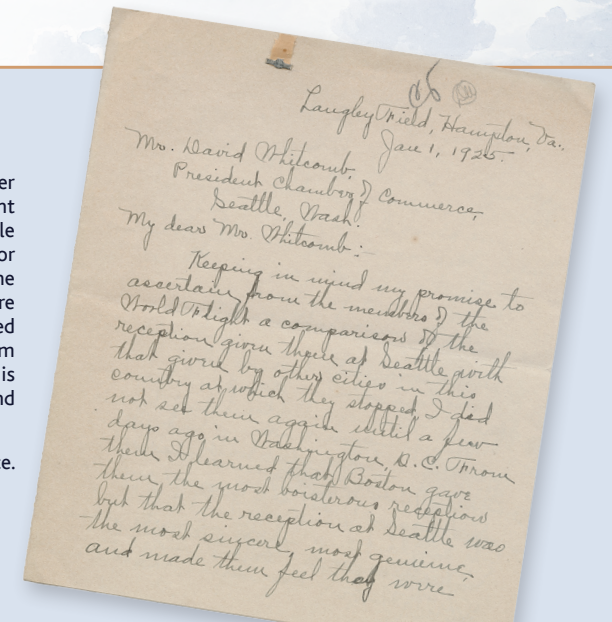 er
nt
le
or
ne
re
ed
m
is
nd
e.
Langley Field, Hampton, Va.
Jan 1, 1925.
Mr. David Whitcomb,
President Chamber of Commerce,
Seattle, Wash.
My dear Mr. Whitcomb:-
Keeping in mind my promise to
ascertain from the members of the
World Flight a comparison of the
reception given them at Seattle with
that given by other cities in this
country at which they stopped, I did
not see them again until a few
days ago in Washington, D.C. From
them I learned that Boston gave
them the most boisterous reception
but that the reception at Seattle was
the most sincere, most genuine,
and made them feel they were